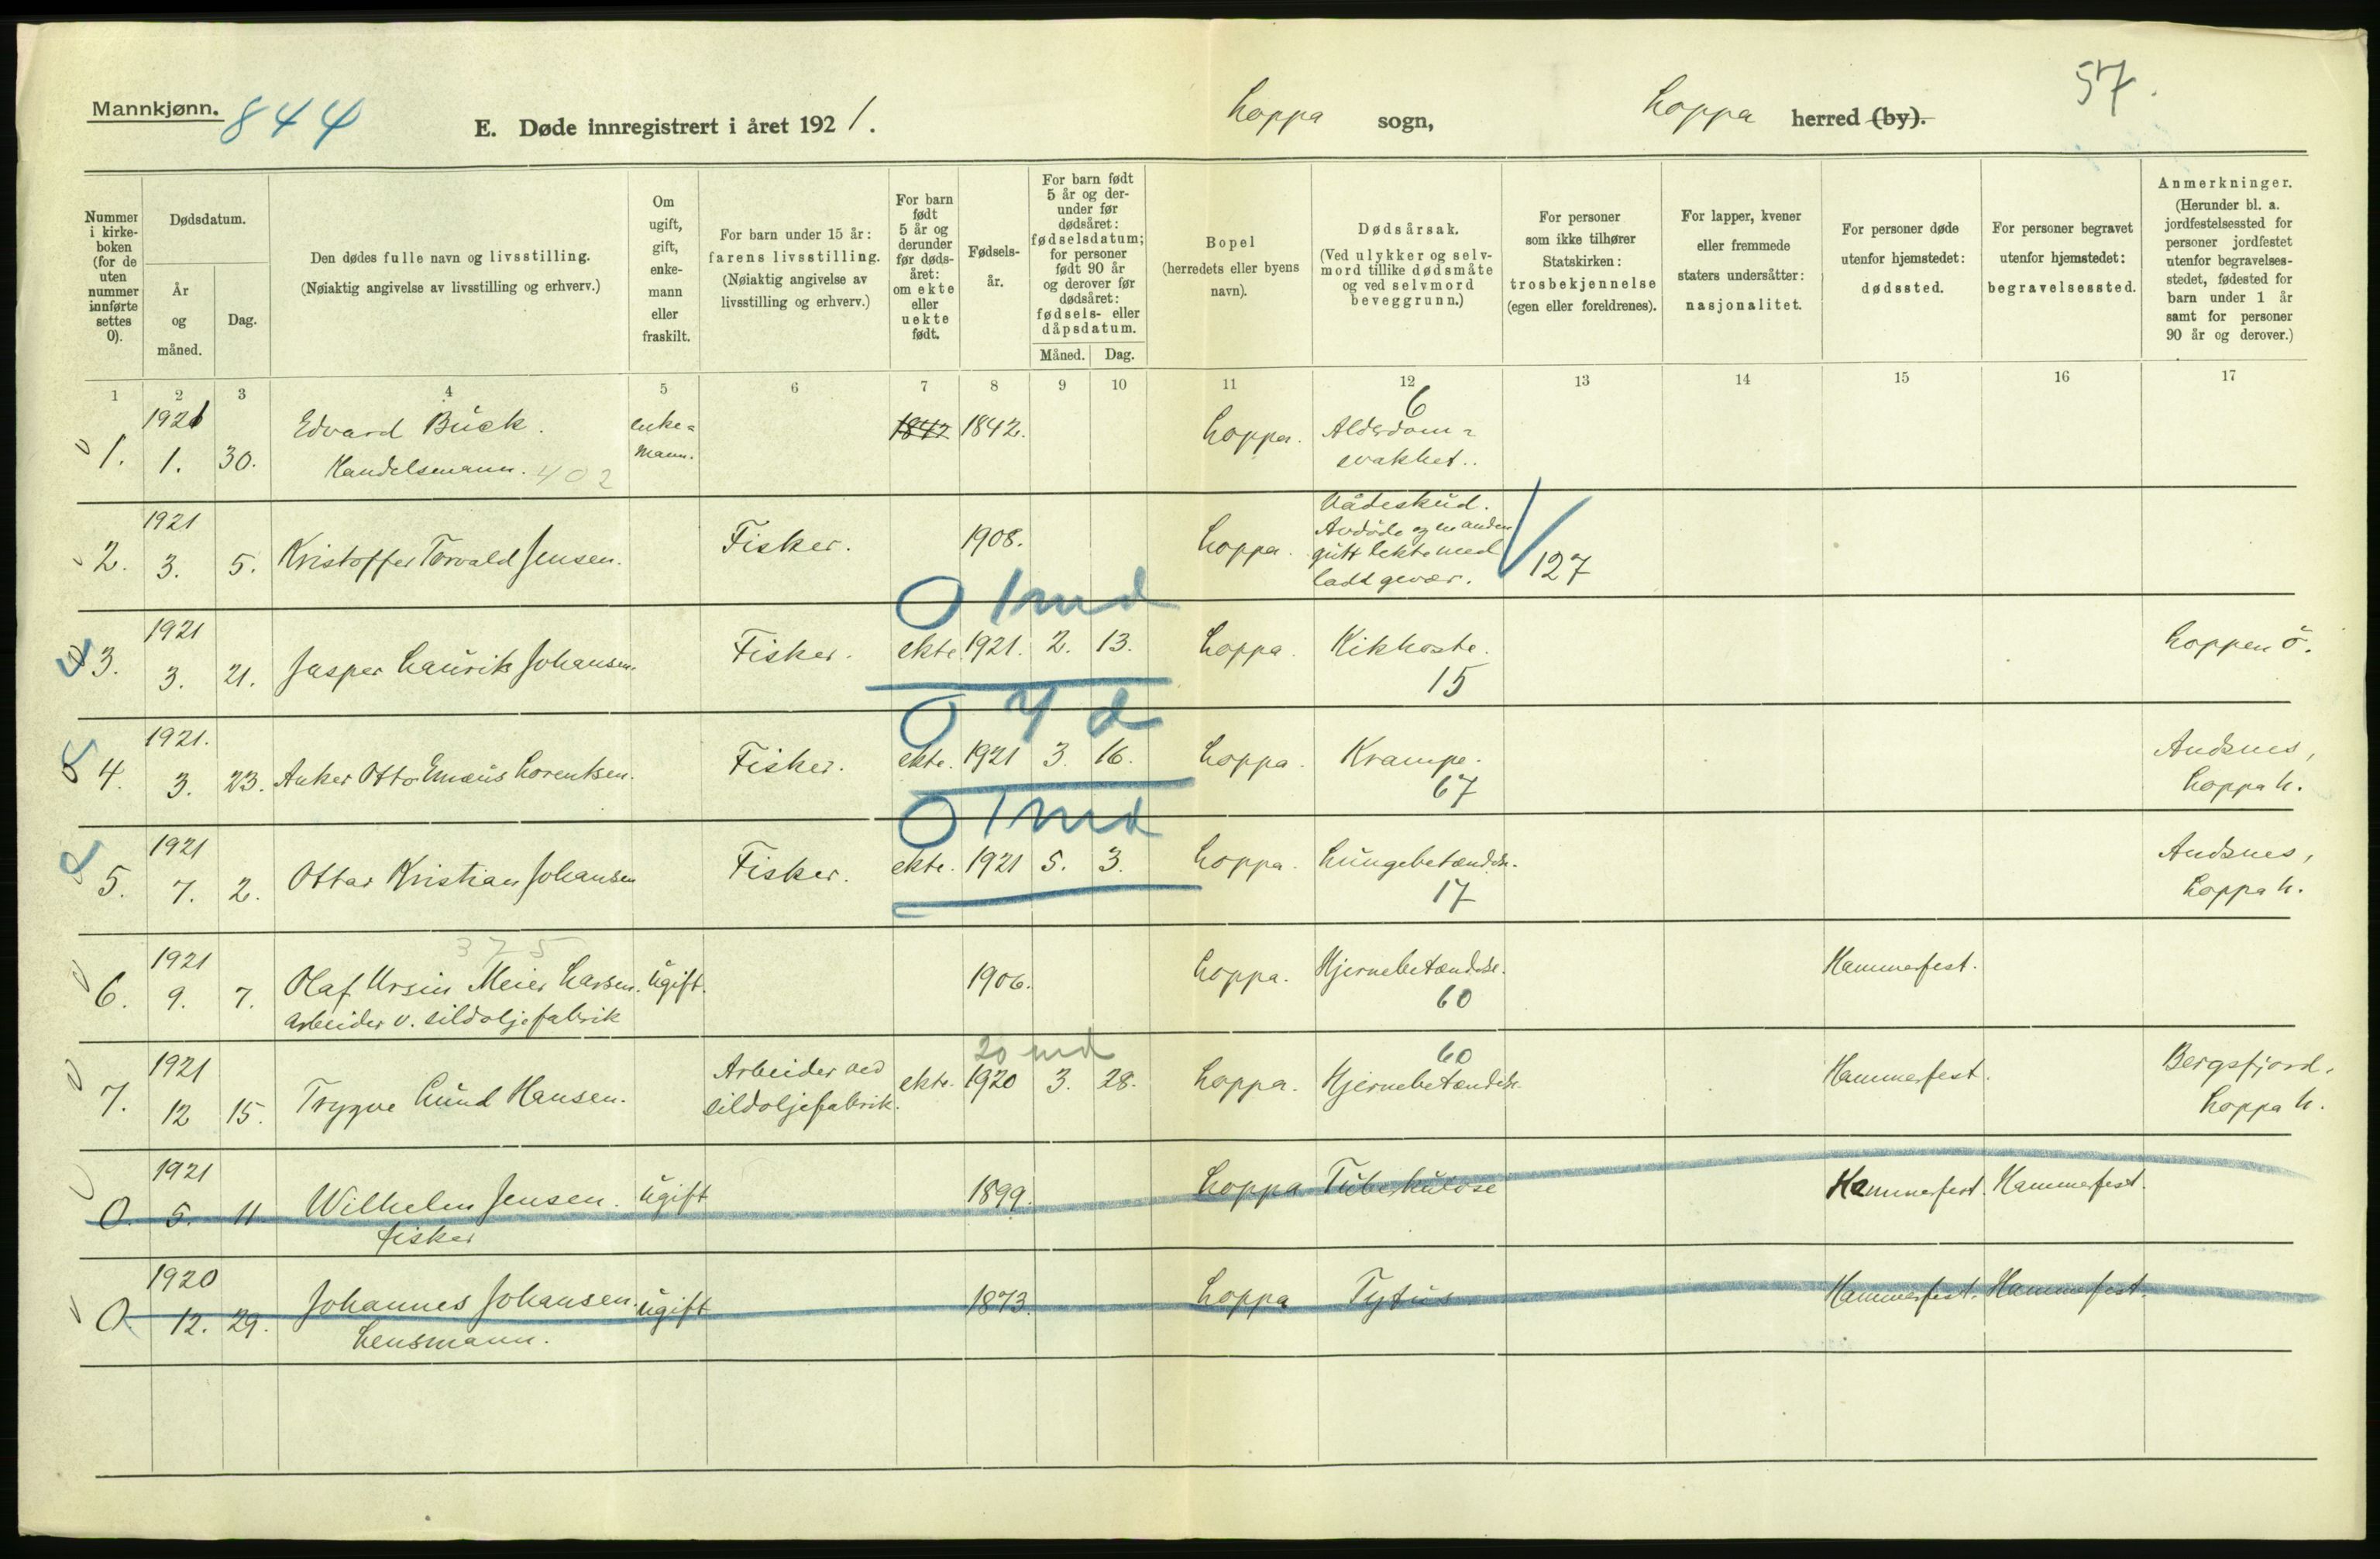 Mannkjønn. 844
E. Døde innregistrert i året 1921.
Loppa sogn,
Loppa herred (by).
57.
Nummer
i kirke-
boken
(for de
uten
nummer
innførte
settes
0).
Dødsdatum.
År
og
måned.
Dag.
Den dødes fulle navn og livsstilling.
(Nøiaktig angivelse av livsstilling og erhverv.)
Om
ugift,
gift,
enke-
mann
eller
fraskilt.
For barn under 15 år:
farens livsstilling.
(Nøiaktig angivelse av
livsstilling og erhverv.)
For barn
født
5 år og
derunder
før døds-
året:
om ekte
eller
uekte
født.
Fødsels-
år.
For barn født
5 år og der-
under før
dødsåret:
fødselsdatum;
for personer
født 90 år
og derover før
dødsåret:
fødsels- eller
dåpsdatum.
Måned. Dag.
Bopel
(herredets eller byens
navn).
Dødsårsak.
(Ved ulykker og selv-
mord tillike dødsmåte
og ved selvmord
beveggrunn.)
For personer
som ikke tilhører
Statskirken:
trosbekjennelse
(egen eller foreldrenes).
For lapper, kvener
eller fremmede
staters undersåtter:
nasjonalitet.
For personer døde
utenfor hjemstedet:
dødssted.
For personer begravet
utenfor hjemstedet:
begravelsessted.
Anmerkninger.
(Herunder bl. a.
jordfestelsessted for
personer jordfestet
utenfor begravelses-
stedet, fødested for
barn under 1 år
samt for personer
90 år og derover.)
1 2 3 4 5 6 7 8 9 10 11 12 13 14 15 16 17
1921
1. 1. 30. Edvard Buck.
Handelsmann. 402
enke=
mann.
1842 1842. Loppa.
6
Alderdom=
svakhet..
1921
2. 3. 5. Kristoffer Torvald Jensen. Fisker. 1908. Loppa.
Vådeskud.
Avdöde og en anden
gutt lekte med
ladt gevær.
127
0 1 md
1921
3. 3. 21. Jasper Laurik Johansen. Fisker. ekte 1921. 2. 13. Loppa. Kikhoste.
15
Loppen ö.
0 7 d
1921.
4. 3. 23. Anker Otto Emæus Lorentsen. Fisker. ekte. 1921 3. 16. Loppa. Krampe.
67
Andsnes,
Loppa h.
0 1 md
1921
5. 7. 2. Ottar Kristian Johansen Fisker. ekte. 1921 5. 3. Loppa. Lungebetændelse.
17
Andsnes,
Loppa h.
375
1921
6. 9. 7. Olaf Ursin Meier Larsen. ugift.
arbeider v. sildoljefabrik
1906. Loppa. Hjernebetændelse.
60
Hammerfest.
20 md
1921
7. 12 15. Trygve Lund Hansen.
Arbeider ved
sildoljefabrik.
ekte. 1920 3. 28. Loppa.
60
Hjernebetændelse.
Hammerfest.
Bergsfjord.
Loppa h.
1921
0. 5. 11 Wilhelm Jensen. ugift
fisker
1899. Loppa Tuberkulose Hammerfest. Hammerfest.
1920
0. 12. 29. Johannes Johansen. ugift
Lensmann.
1873. Loppa Tyfus Hammerfest. Hammerfest.